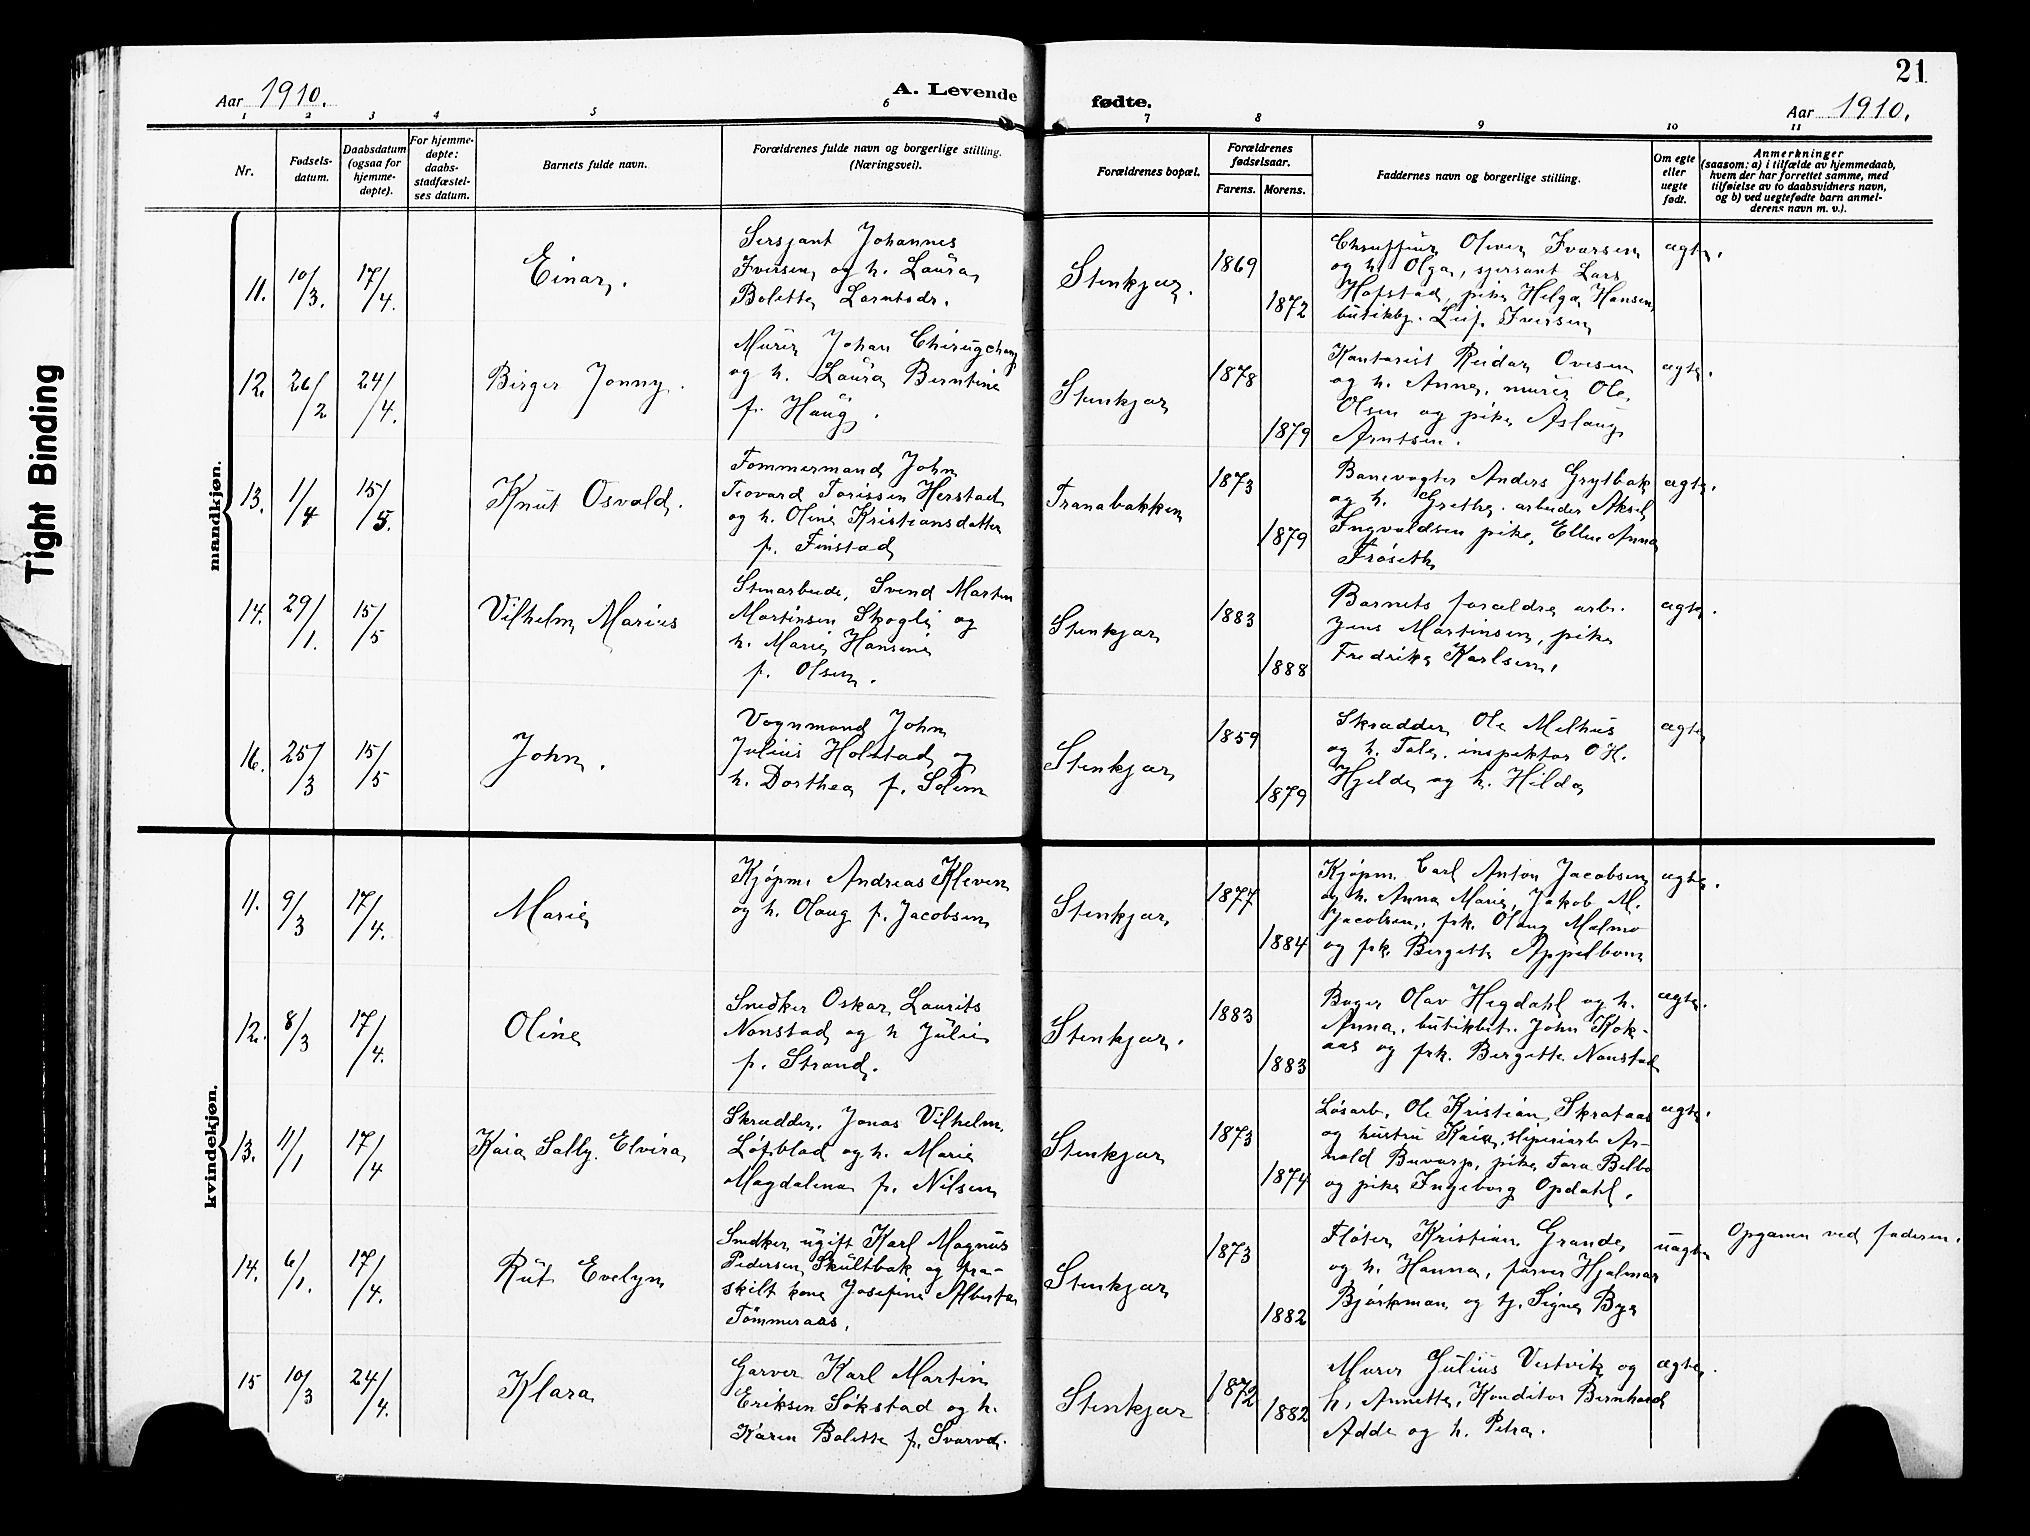 Tight Binding
21
Aar 1910.
A. Levende
fødte.
Aar 1910.
1 2 3 4 5 6 7 8 9 10 11
Nr.
Fødsels-
datum.
Daabsdatum
(ogsaa for
hjemme-
døpte).
For hjemme-
døpte:
daabs-
stadfæstel-
ses datum.
Barnets fulde navn.
Forældrenes fulde navn og borgerlige stilling.
(Næringsvei).
Forældrenes bopæl.
Forældrenes
fødselsaar.
Farens. Morens.
Faddernes navn og borgerlige stilling.
Om egte
eller
uegte
født.
Anmerkninger
(saasom: a) i tilfælde av hjemmedaab,
hvem der har forrettet samme, med
tilføielse av to daabsvidners navn,
og b) ved uegtefødte barn anmel-
derens navn m. v.).
mandkjøn.
11.
10/3.
17/4.
Einar.
Sersjant Johannes
Iversen og h. Laura
Bolette Larntsdr.
Stenkjær.
1869
1872
Oliver Ivarsen
og h. Olga, sjersant Lars
Hofstad, pike Helga Hansen
butikbj. Leif Iversen
ægte.
12.
26/2
24/4.
Birger Jonny.
Murer Johan
og h. Laura Berntine
f. Haug.
Stenkjær
1878
1879
Kontorist Reidar Ovesen
og h. Anna, murer Ole
Olsen og pike Aslaug
Arntsen.
ægte.
13.
1/4
15/5.
Knut Osvald.
Tømmermand John
Teovard Torissen Herstad
og h. Oline Kristiansdatter
f. Finstad
Tranabakken
1873
1879
Banevogter Anders Grytbak
og h. Grethe. arbeider Aksel
Ingvaldsen pike, Ellen Anna
Frøseth
ægte.
14.
29/1.
15/5
Vilhelm Marius
Stenarbeide, Svend Morten
Martinsen Skogli og
h. Marie Hansine
f. Olsen.
Stenkjær
1883
1888
Barnets forældre arb.
Jens Martinsen, pike
Fredrike Karlsen.
ægte.
16.
25/3
15/5
John.
Vognmand John
Julius Holstad og
h. Dorthea f. Solem
Stenkjær
1859
1879
Skrædder Ole Melhus
og h. Tale, inspektør O H.
Hjelde og h. Hilda
ægte
kvindekjøn.
11.
9/3
17/4.
Marie
Kjøpm. Andreas Kleven
og h. Olaug f. Jacobsen
Stenkjær
1877
1884
Kjøpm. Carl Anton Jacobsen
og h. Anna Marie, Jakob M.
Jacobsen, frk. Olaug Malmo
og frk. Bergitte Appelbom
ægte.
12.
8/3
17/4.
Oline
Snedker Oskar Laurits
Nonstad og h Julie
f. Strand.
Stenkjær.
1883
1883
Bager Olav Hegdahl og h.
Anna, butikbet. John Kok-
aas og frk. Bergitte Nonstad
ægte.
13.
11/1
17/4
Kaia Sally. Elvira
Skrædder. Jonas Vilhelm
Löfblad og h. Marie
Magdalena f. Nilsen
Stenkjær
1873
1874
Løsarb. Ole Kristian Skrataas
og hustru Kaia, sliperiarb Ar-
nold Buvarp, pike Tora Belbo
og pike Ingeborg Opdahl.
ægte.
14.
6/1.
17/4.
Rut Evelyn
Snedker ugift Karl Magnus
Pedersen Skultbak og fra-
skilt kone Josefine Alberta
Tømmeraas.
Stenkjær
1873
1882
Fløter Kristian Grande
og h. Hanna, farver Hjalmar
Bjørkman og tj. Signe Bye
uægte
Opgaven ved faderen.
15
10/3
24/4.
Klara
Garver Karl Martin
Eriksen Søkstad og h.
Karen Bolette f. Svarva.
Stenkjær
1872
1882
Murer Julius Vestvik og
h. Annette, Konditor Bernhard
Adde og h. Petra.
ægte.